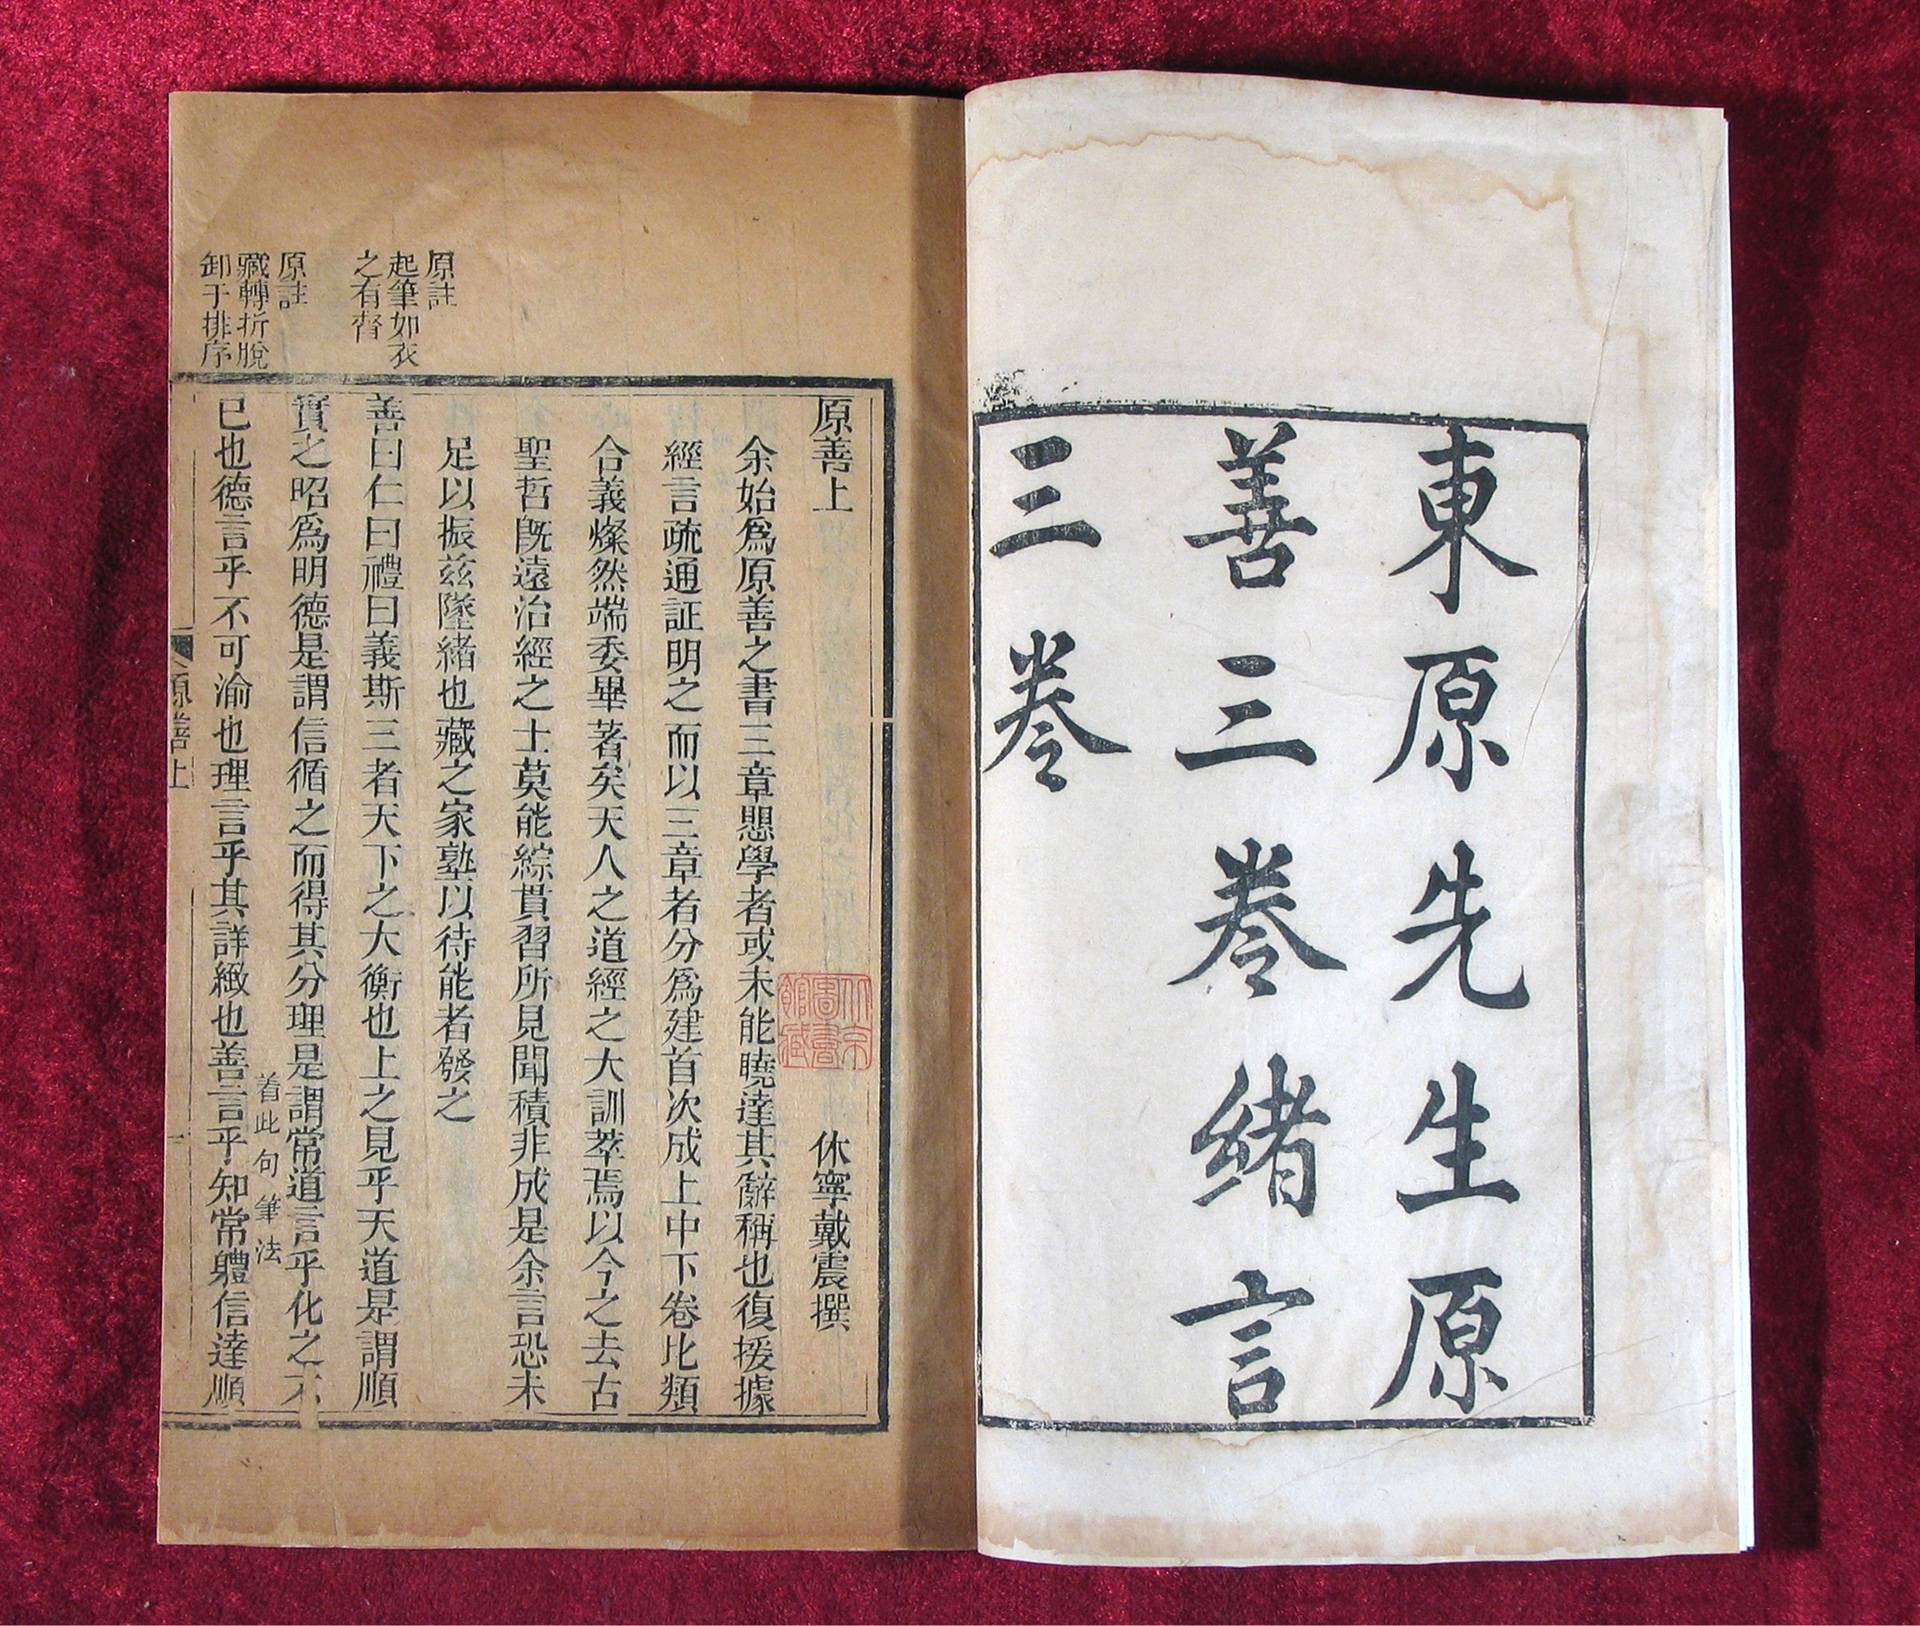 東原先生原
善三卷緒言
三卷
原善上
休寧戴震撰
余始爲原善之書三章懼學者或未能曉達其辭稱也復援據
經言疏通証明之而以三章者分爲建首次成上中下卷比類
合義燦然端委畢著矣天人之道經之大訓萃焉以今之去古
聖哲旣遠治經之士莫能綜貫習所見聞積非成是余言恐未
足以振茲墜緒也藏之家塾以待能者發之
善曰仁曰禮曰義斯三者天下之大衡也上之見乎天道是謂順
實之昭爲明德是謂信循之而得其分理是謂常道言乎化之不
着此句筆法
已也德言乎不可渝也理言乎其詳緻也善言乎知常軆信達順
原註
起筆如衣
之有督
原註
藏轉折脫
卸于排序
原善上
一
北京
圖書
館藏